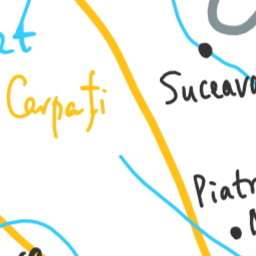 Carpați
Suceava
Piatr